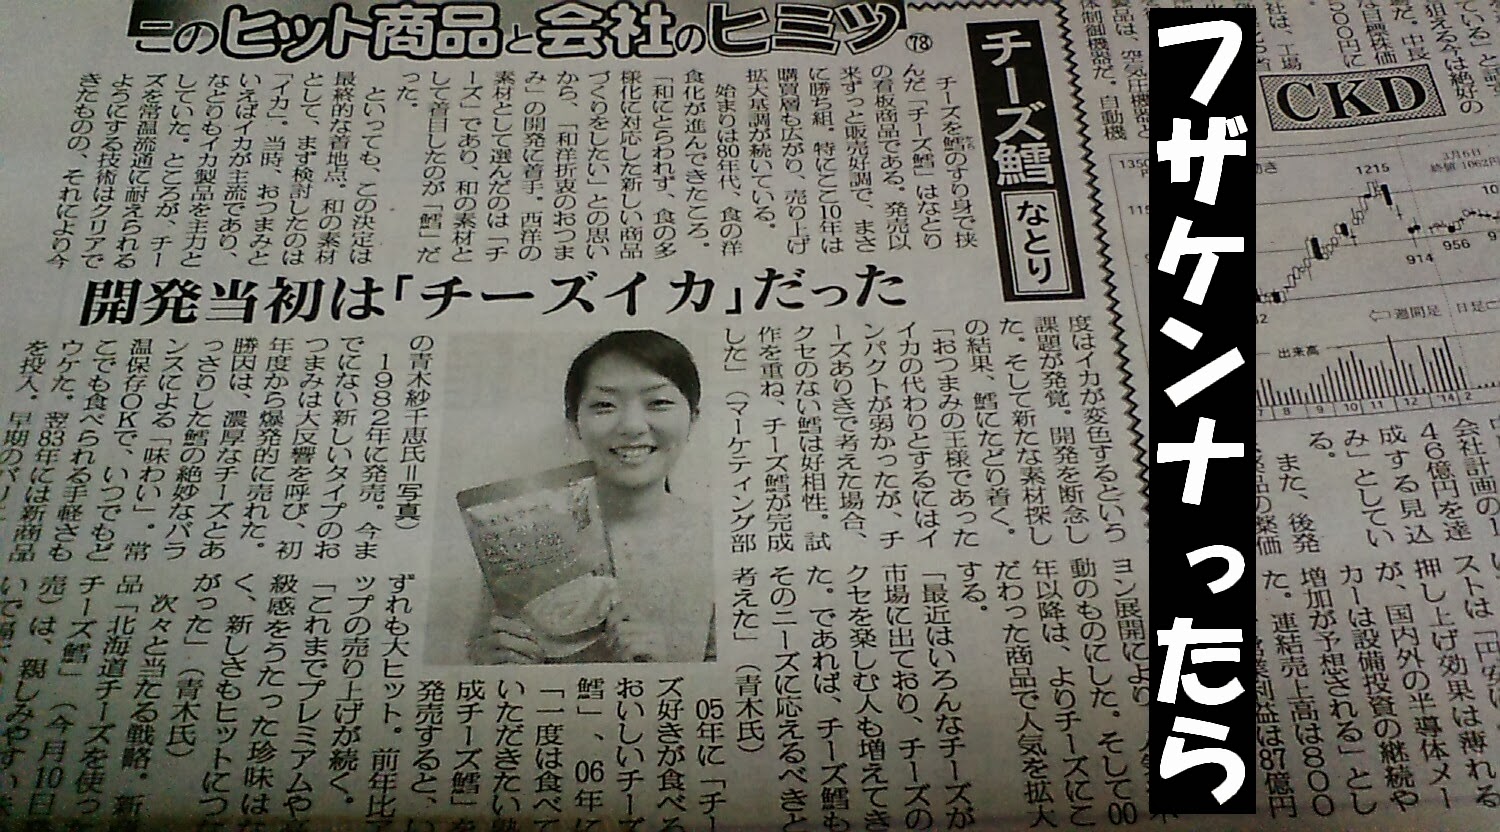 このヒット商品と会社のヒミツ
78
チーズ鱈
なとり
チーズを鱈のすり身で挟
んだ「チーズ鱈」はなとり
の看板商品である。発売以
来ずっと販売好調で、まさ
に勝ち組。特にここ10年は
購買層も広がり、売り上げ
拡大基調が続いている。
始まりは80年代、食の洋
食化が進んできたころ。
「和にとらわれず、食の多
様化に対応した新しい商品
づくりをしたい」との思い
から、「和洋折衷のおつま
み」の開発に着手。西洋の
素材として選んだのは「チ
ーズ」であり、和の素材と
して着目したのが「鱈」だ
った。
といっても、この決定は
最終的な着地点。和の素材
として、まず検討したのは
「イカ」。当時、おつまみと
いえばイカが主流であり、
なとりもイカ製品を主力と
していた。ところが、チー
ズを常温流通に耐えられる
ようにする技術はクリアで
きたものの、それにより今
開発当初は「チーズイカ」だった
度はイカが変色するという
課題が発覚。開発を断念し
た。そして新たな素材探し
の結果、鱈にたどり着く。
「おつまみの王様であった
イカの代わりとするにはイ
ンパクトが弱かったが、チ
ーズありきで考えた場合、
クセのない鱈は好相性。試
作を重ね、チーズ鱈が完成
した」(マーケティング部
の青木紗千恵氏=写真)
1982年に発売。今ま
でにない新しいタイプのお
つまみは大反響を呼び、初
年度から爆発的に売れた。
勝因は、濃厚なチーズとあ
っさりした鱈の絶妙なバラ
ンスによる「味わい」。常
温保存OKで、いつでもど
こでも食べられる手軽さも
ウケた。翌83年には新商品
を投入。早期のバリ
ヨン展開により
動のものにした。そして00
年以降は、よりチーズにこ
だわった商品で人気を拡大
する。
「最近はいろんなチーズが
市場に出ており、チーズの
クセを楽しむ人も増えてき
た。であれば、チーズ鱈も
そのニーズに応えるべきと
考えた」(青木氏)
05年に「チー
ズ好きが食べる
おいしいチーズ
鱈」、06年に
「一度は食べて
いただきたい熟
成チーズ鱈」を
発売すると、い
ずれも大ヒット。前年比
ップの売り上げが続く。
「これまでプレミアムや
級感をうたった珍味は
く、新しさもヒットにつ
がった」(青木氏)
次々と当たる戦略。新
品「北海道チーズを使っ
チーズ鱈」(今月10日
売)は、親しみやすい
フザケンナったら
CKD
3月6日
終値1062円
1350
1215
914
956
週間足
日足
出来高
7 8 9 10 11 12 '14 2
会社計画の1
46億円を達
成する見込
み」としてい
る。
また、後発
薬品の薬価
ストは「円安
押し上げ効果は薄れる
が、国内外の半導体メー
カーは設備投資の継続や
増加が予想される」とし
た。連結売上高は800
営業利益は87億円